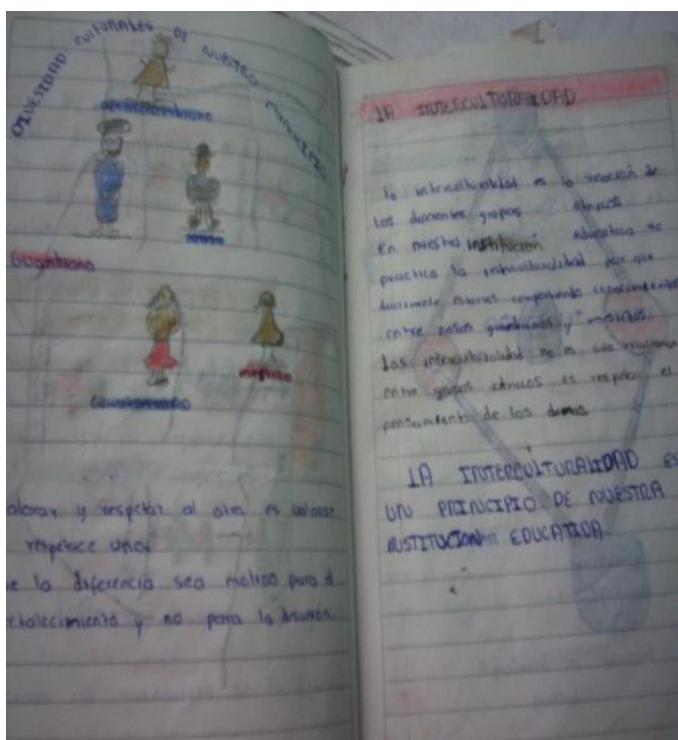 DIVERSIDAD CULTURALES DE NUESTRO MUNICIPIO
afrocolombiano
Guambiano
mestizo
alorar y respetar al otro es valorar
respetace uno.
e la diferencia sea motivo para el
rtalecimiento y no para la
LA INTERCULTURALIDAD
la interculturalidad es la relación de
los diferentes grupos etnicos
En nuestra institución educativa se
practica la interculturalidad por que
estamos compartiendo
entre guambianos y mestizos
Las interculturalidad no es solo
entre grupos etnicos es respetar el
pensamiento de los demas
LA INTERCULTURALIDAD ES
UN PRINCIPIO DE NUESTRA
INSTITUCION EDUCATIVA